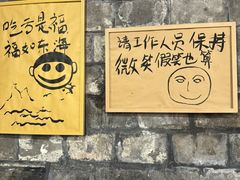 吃亏是福
福如东海
请工作人员保持
微笑假笑也算